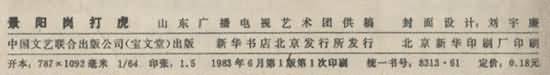 景阳岗打虎 山东广播电视艺术团供稿 封面设计：刘宇廉
中国文艺联合出版公司（宝文堂）出版 新华书店北京发行所发行 北京新华印刷厂印刷
开本：787×1092毫米 1/64 印张：1.5 1983年6月第1版第1次印刷 统一书号：8313·61 定价：0.18元